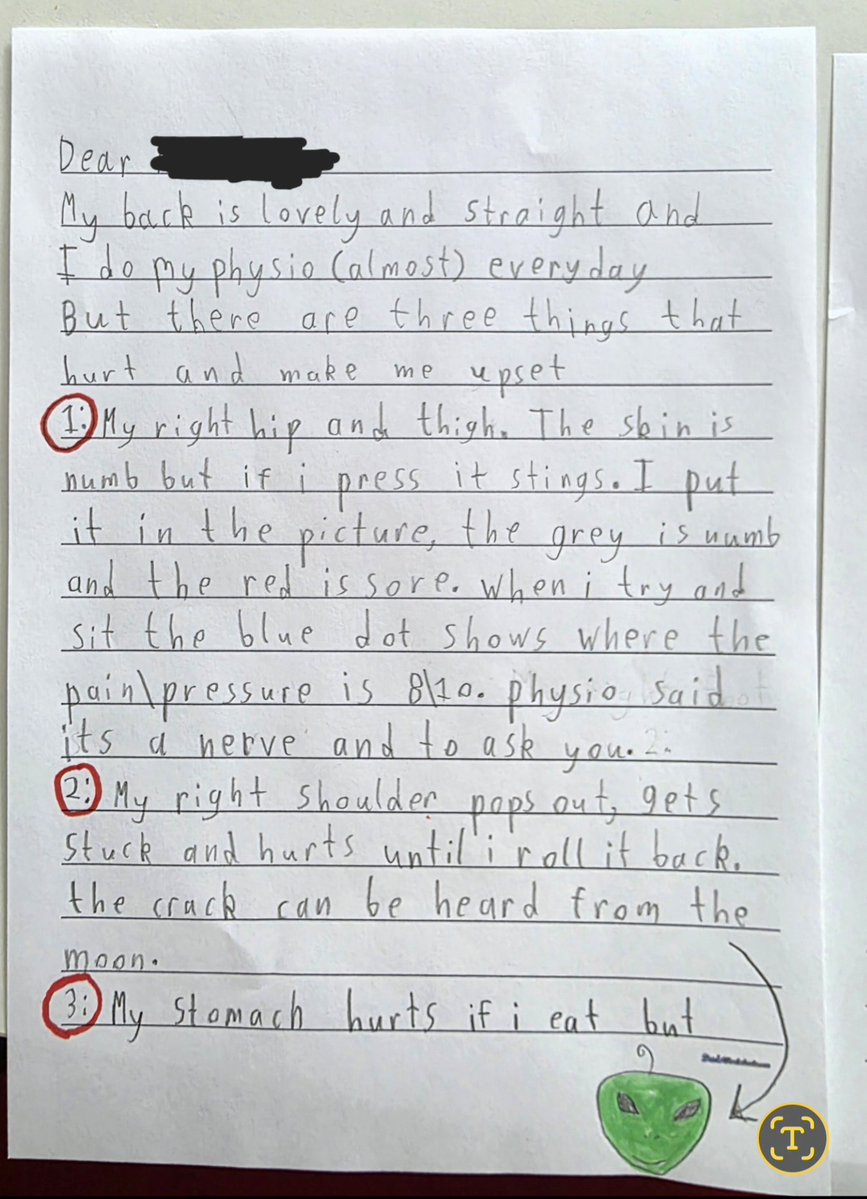 Dear
My back is lovely and straight and
I do my physio (almost) everyday
But there are three things that
hurt and make me upset
1: My right hip and thigh. The skin is
numb but if i press it stings. I put
it in the picture, the grey is numb
and the red is sore. When i try and
sit the blue dot shows where the
pain\pressure is 8\10. physio said
its a nerve and to ask you.
2: My right shoulder pops out, gets
stuck and hurts until i roll it back.
the crack can be heard from the
moon.
3: My stomach hurts if i eat but